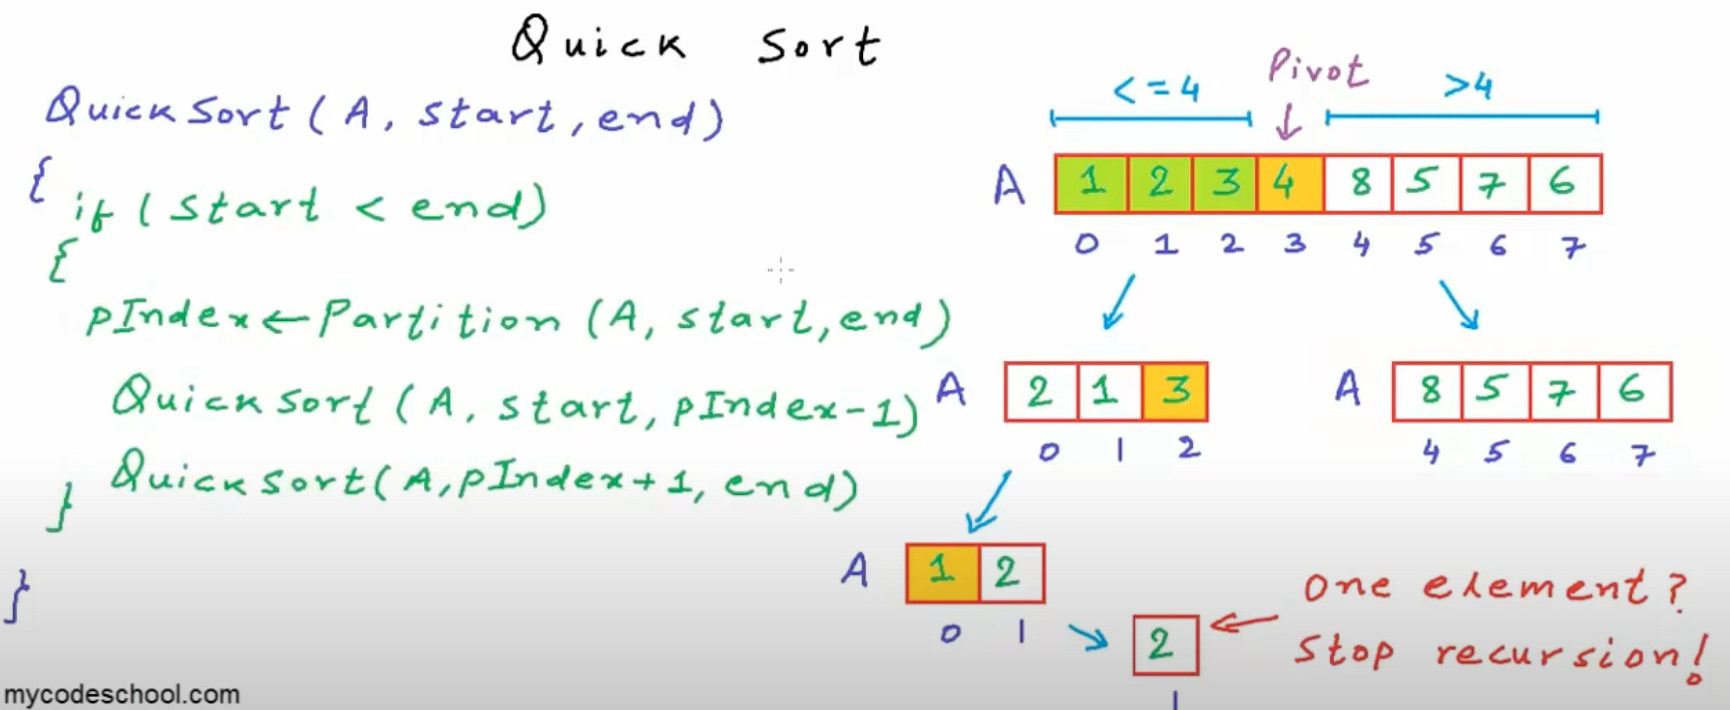 Quick Sort
QuickSort(A, start, end)
{
if (start < end)
{
pIndex ← Partition (A, start, end)
QuickSort (A, start, pIndex-1)
QuickSort(A, pIndex+1, end)
}
}
<=4 Pivot >4
A 1 2 3 4 8 5 7 6
0 1 2 3 4 5 6 7
A 2 1 3
0 1 2
A 8 5 7 6
4 5 6 7
A 1 2
0 1
2
1
One element?
Stop recursion!
mycodeschool.com